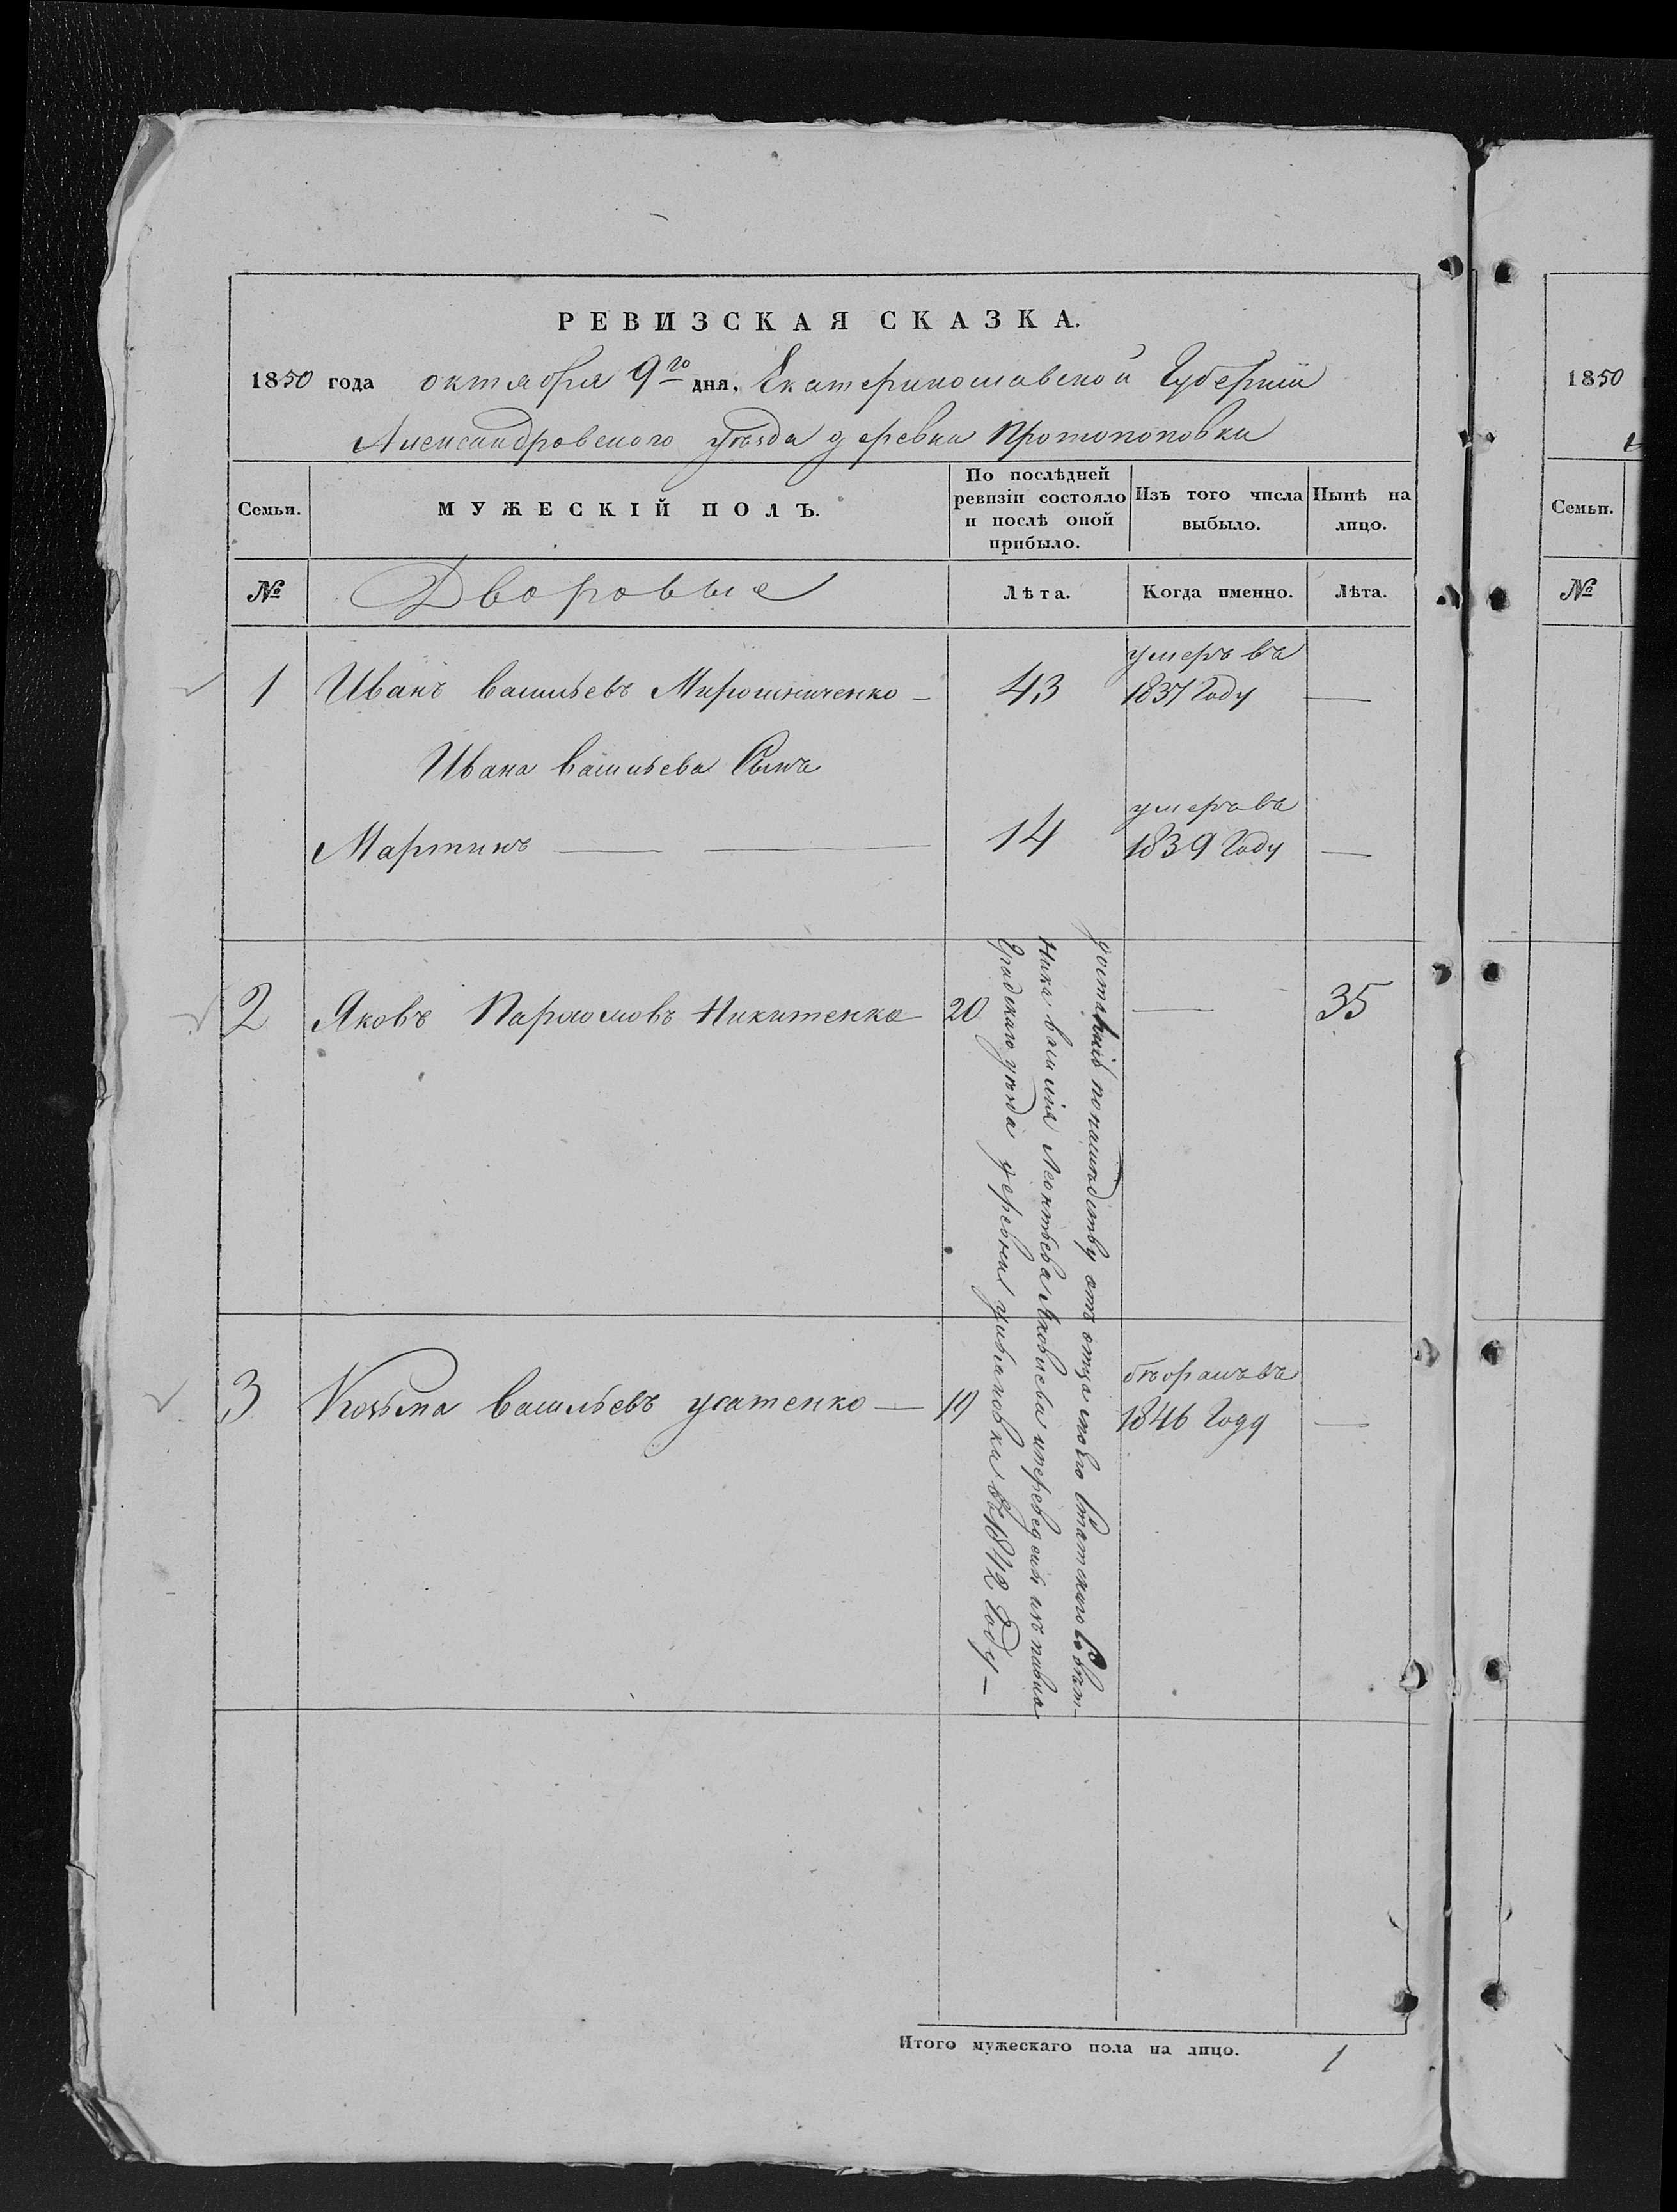 РЕВИЗСКАЯ СКАЗКА.
1850 года октября 9го дня, Екатеринославской Губернии
Александровского уѣзда деревни Протопоповки
Семьи.
МУЖЕСКІЙ ПОЛЪ.
По послѣдней
ревизіи состояло
и послѣ оной
прибыло.
Изъ того числа
выбыло.
Нынѣ на
лицо.
№
Дворовые
Лѣта.
Когда именно.
Лѣта.
1 Иванъ васильевъ Мирошниченко — 43 умеръ въ
1837 Году —
Ивана васильева Сынъ
Мартинъ — — 14 умеръ въ
1839 Году —
2 Яковъ Парфомовъ Никитенко 20 — 35
доставшіе по наслѣдству отъ отца моего Статского Совѣт-
ника василия Леонтьева Яковлева ипереведены изъ павло
Градскаго уѣзда деревни ульяновки въ 1842 Году —
3 Козьма васильевъ усатенко — 19
1846 Году —
Итого мужескаго пола на лицо. 1
1850
Семьи.
№